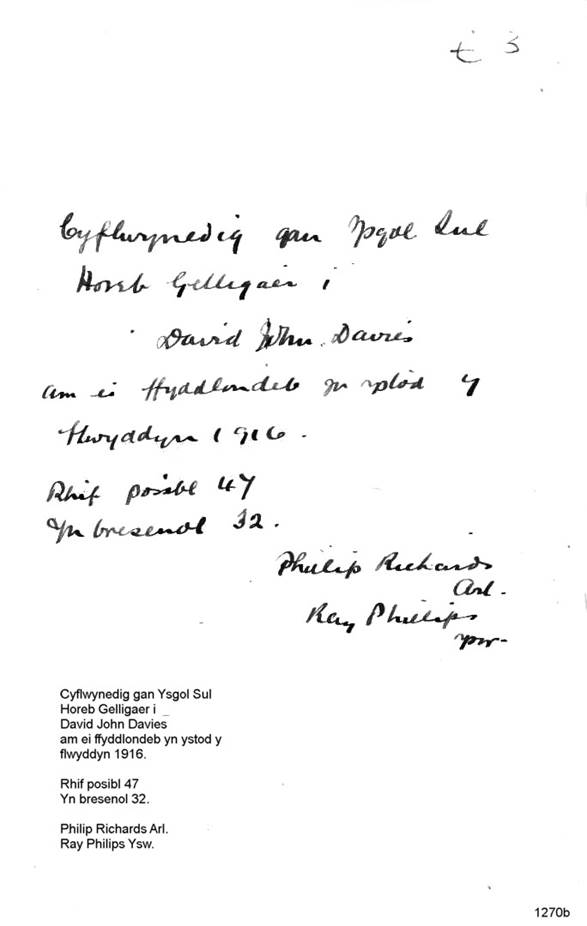 £ 3
Cyflwynedig gan Ysgol Sul
Horeb Gelligaer i
David John Davies
am ei ffyddlondeb yn ystod y
flwyddyn 1916.
Rhif posibl 47
Yn bresenol 32.
Philip Richards
Arl.
Ray Phillips
Ysw.
Cyflwynedig gan Ysgol Sul
Horeb Gelligaer i
David John Davies
am ei ffyddlondeb yn ystod y
flwyddyn 1916.
Rhif posibl 47
Yn bresenol 32.
Philip Richards Arl.
Ray Philips Ysw.
1270b